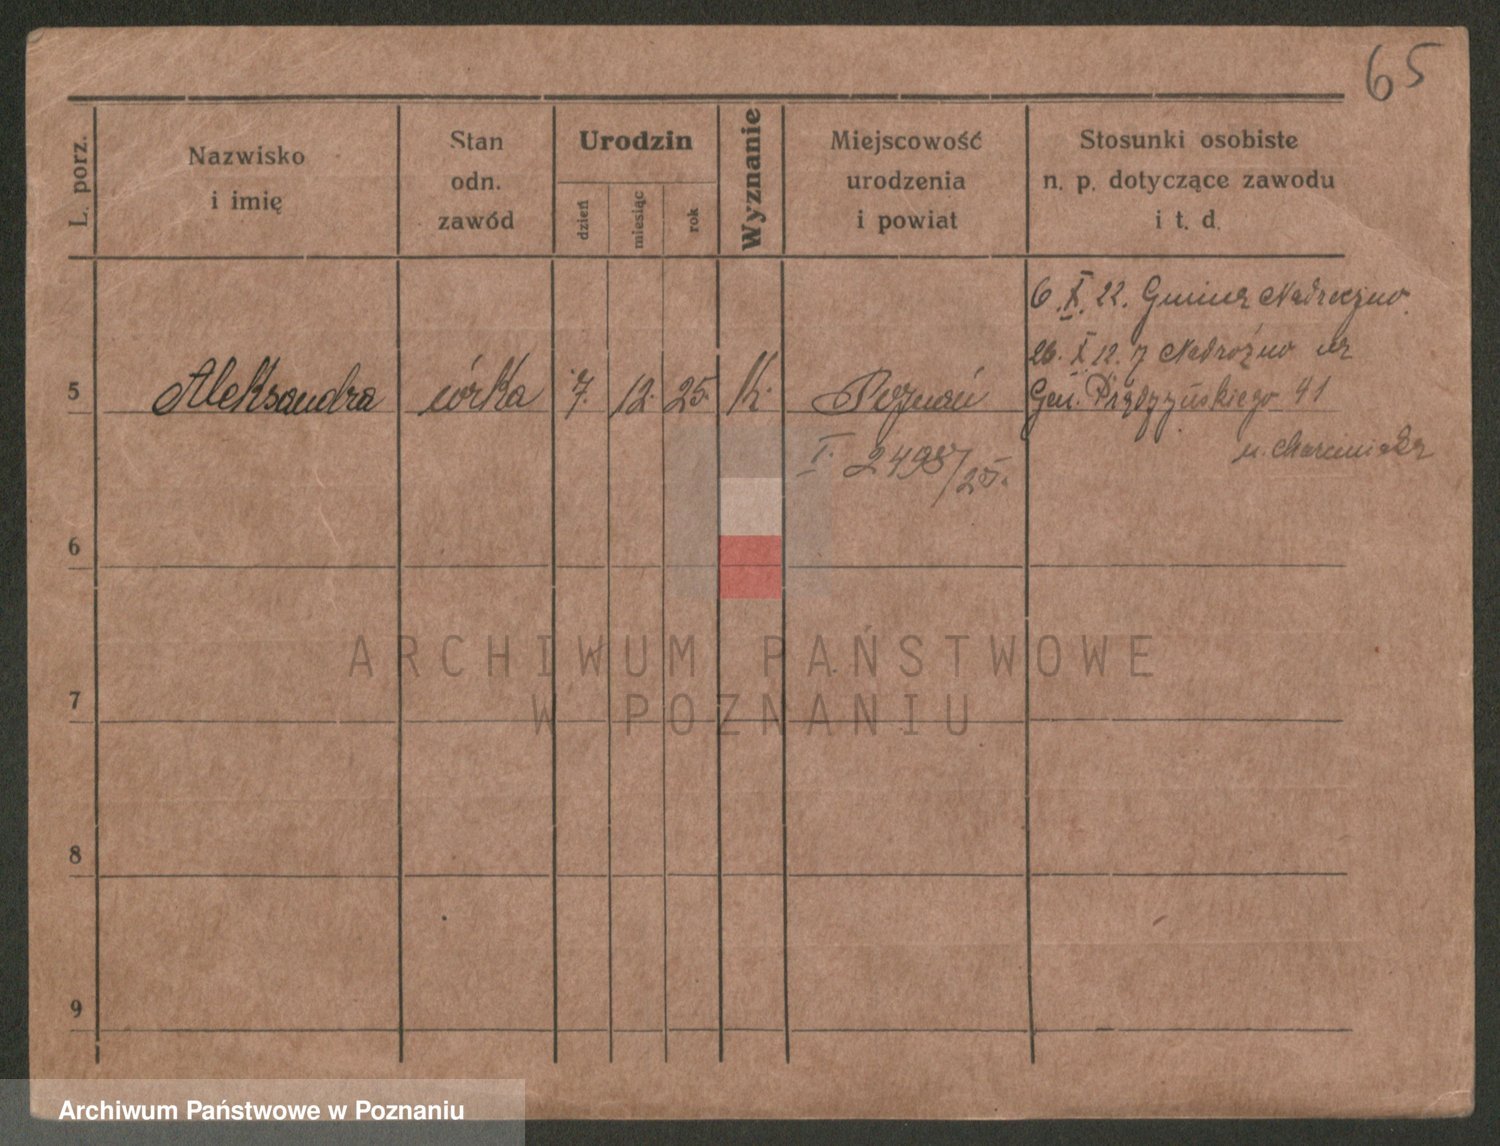 65
L. porz.
Nazwisko
i imię
Stan
odn.
zawód
Urodzin
dzień
miesiąc
rok
Wyznanie
Miejscowość
urodzenia
i powiat
Stosunki osobiste
n. p. dotyczące zawodu
i t. d.
6. X. 22. Gmina
26. X 12. z
5 Aleksandra córka 7. 12. 25. K. Poznań
Gen. Prądzyńskiego 41
I. 2498/25.
u. Marciniaka
6
7
8
9
ARCHIWUM PAŃSTWOWE
W POZNANIU
Archiwum Państwowe w Poznaniu